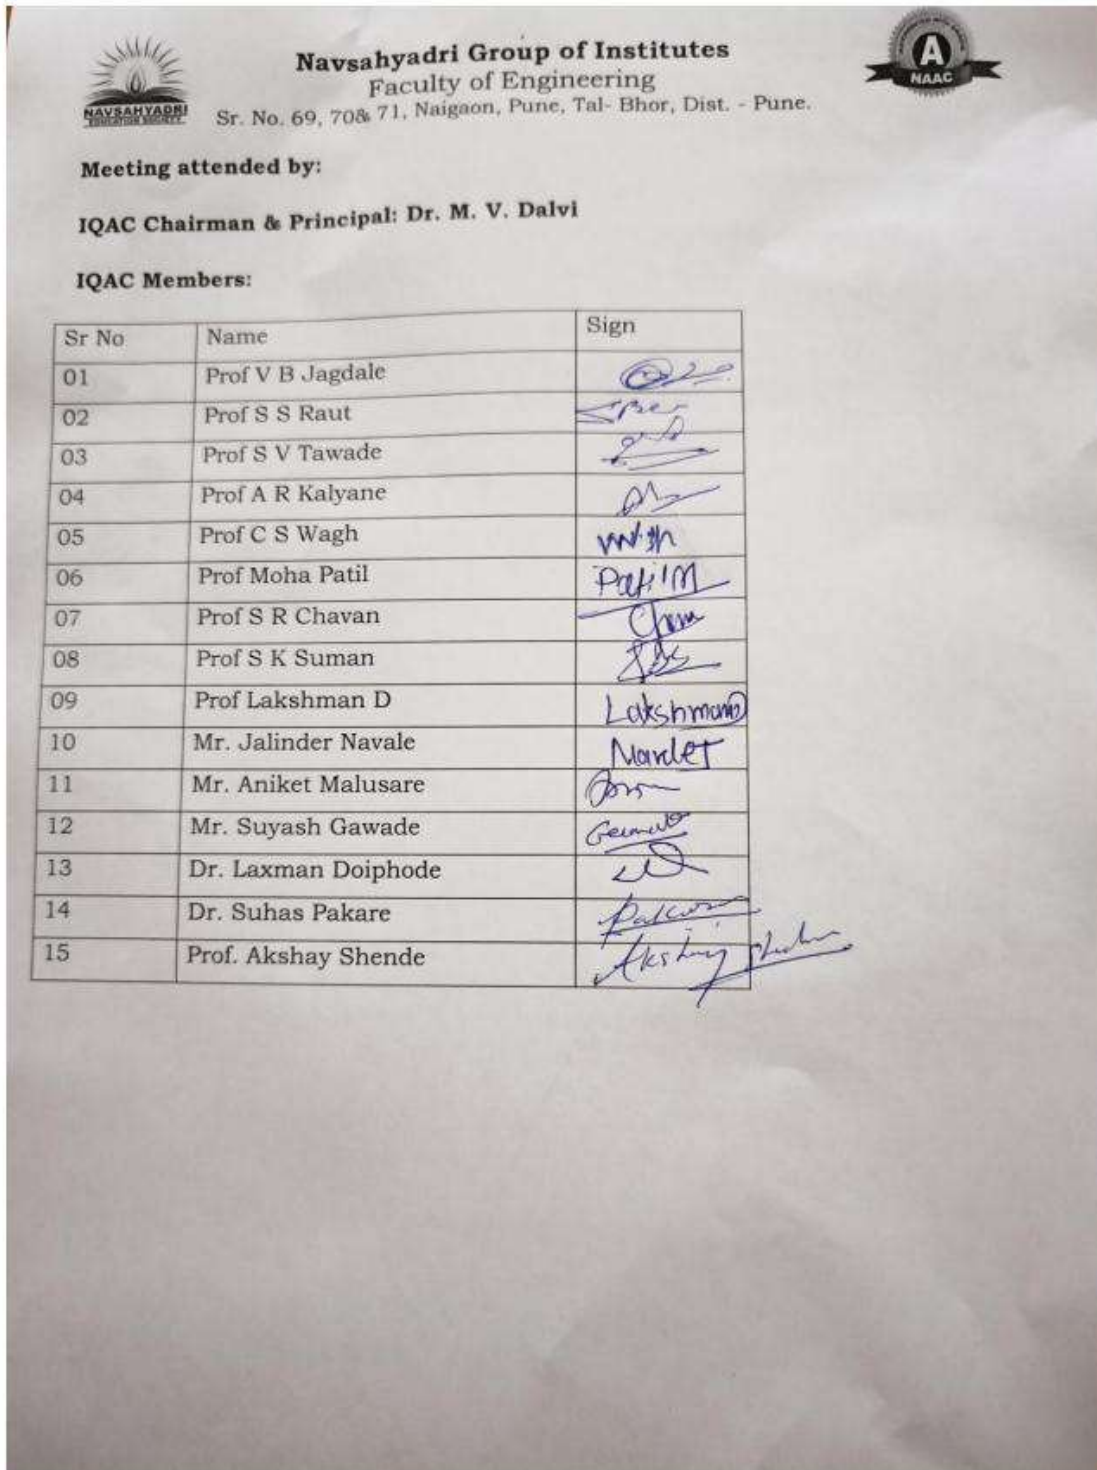 Navsahyadri Group of Institutes
Faculty of Engineering
Sr. No. 69, 70& 71, Naigaon, Pune, Tal- Bhor, Dist. - Pune.
NAVSAHYADRI
EDUCATION SOCIETY
A
NAAC
Meeting attended by:
IQAC Chairman & Principal: Dr. M. V. Dalvi
IQAC Members:
Sr No Name Sign
01 Prof V B Jagdale
02 Prof S S Raut
03 Prof S V Tawade
04 Prof A R Kalyane
05 Prof C S Wagh
06 Prof Moha Patil PatilM
07 Prof S R Chavan
08 Prof S K Suman
09 Prof Lakshman D Lakshman D
10 Mr. Jalinder Navale
11 Mr. Aniket Malusare
12 Mr. Suyash Gawade
13 Dr. Laxman Doiphode
14 Dr. Suhas Pakare
15 Prof. Akshay Shende Akshay